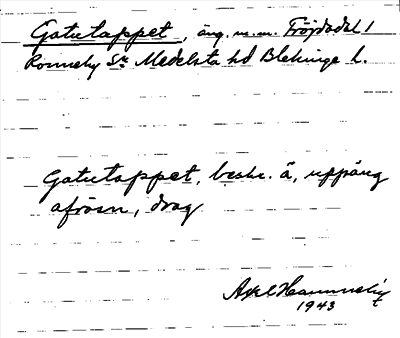 Gatutappet, äng. m.m. Fröjdadal 1
Ronneby Sn Medelsta hd Blekinge l.
Gatutappet, beskr. å, uppäng
afrösn, drag
Axel
1943